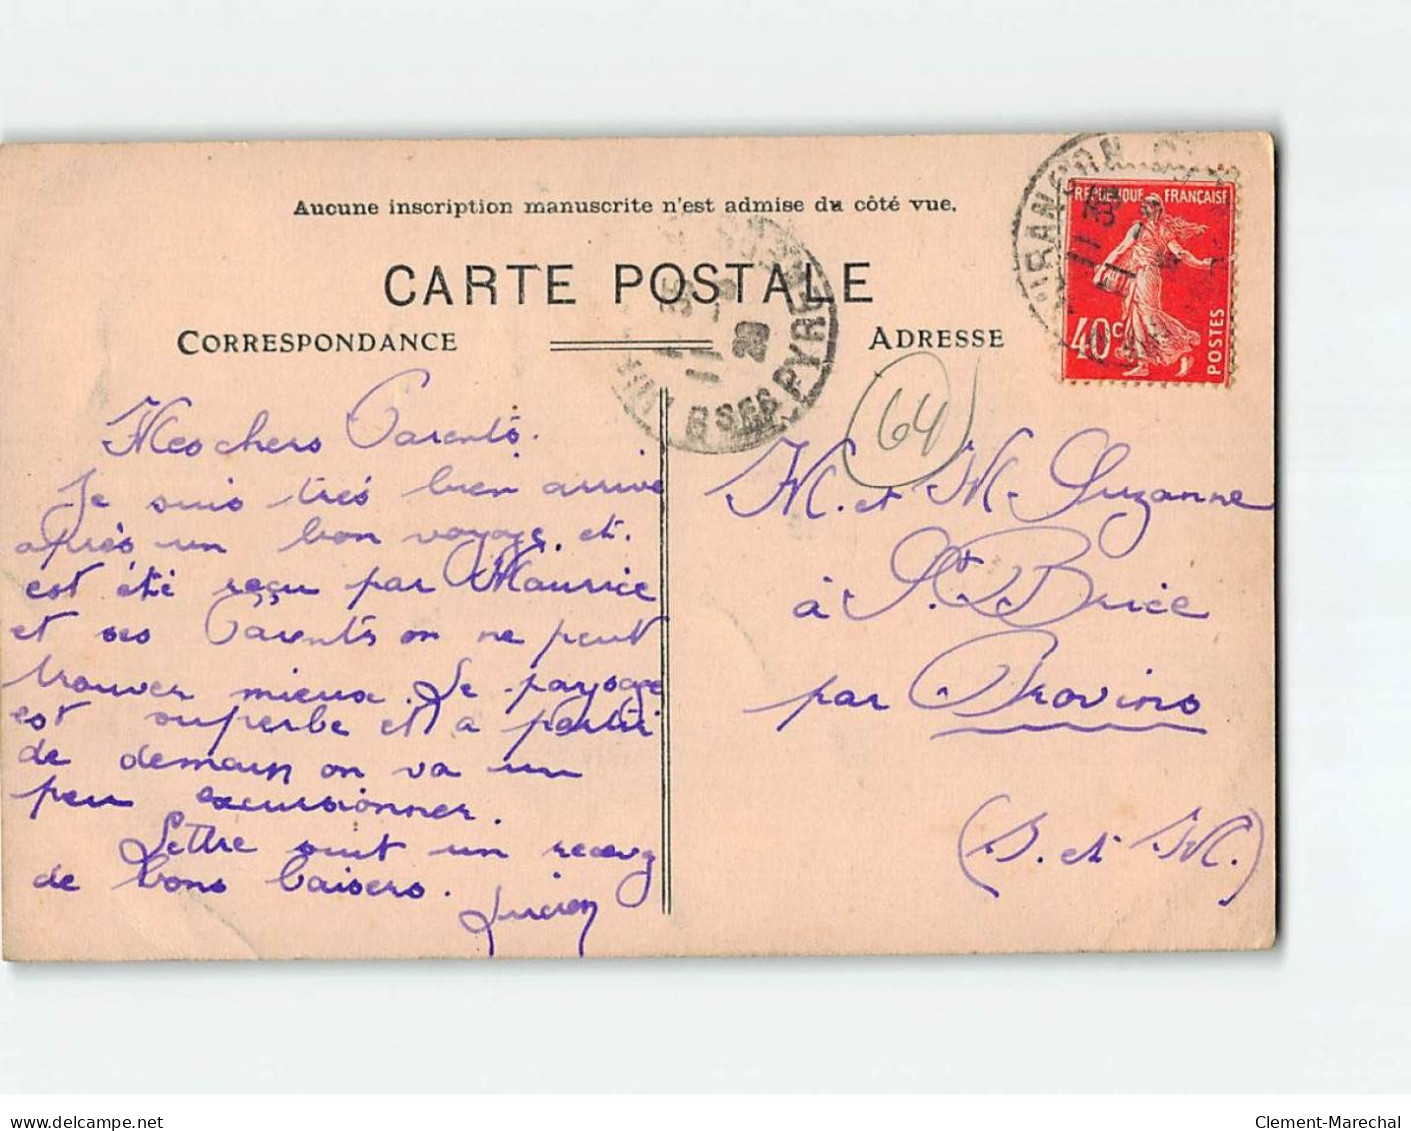 Aucune inscription manuscrite n'est admise du côté vue.
CARTE POSTALE
CORRESPONDANCE
ADRESSE
RÉPUBLIQUE FRANÇAISE
40c
POSTES
64
Mes chers Parents.
Je suis très bien arrivé
après un bon voyage. et.
est été reçu par Maurice
et ses Parents on ne peut
trouver mieux. Le paysage
est superbe et a partir
de demain on va un
peu excursionner.
Lettre suit un recevez
de bons baisers.
Lucien
M. et M. Suzanne
à St Brice
par Provins
(S. et M.)
OISANÇON
BSES PYR
Clement-Marechal